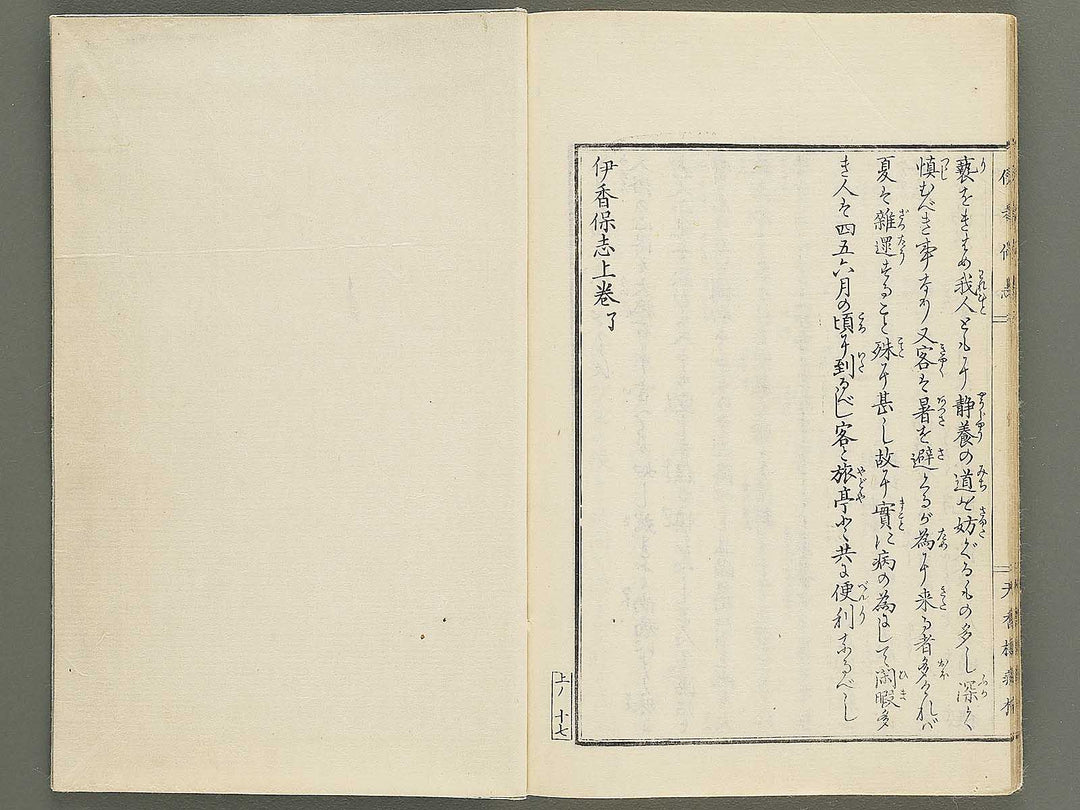 藝をきはめ我人ともに静養の道を妨ぐるもの多し深く
慎むべき事なり又客は暑を避くるが為に来る者多ければ
夏は雑遝すること殊に甚し故に實に病の為にして閑暇多
き人は四五六月の頃に到るべし客と旅亭と共に便利なるべし
伊香保志上巻 了
上ノ十七